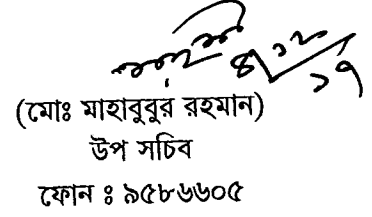 ৪/১২/১৭
(মোঃ মাহাবুবুর রহমান)
উপ সচিব
ফোন ঃ ৯৫৮৬৬০৫